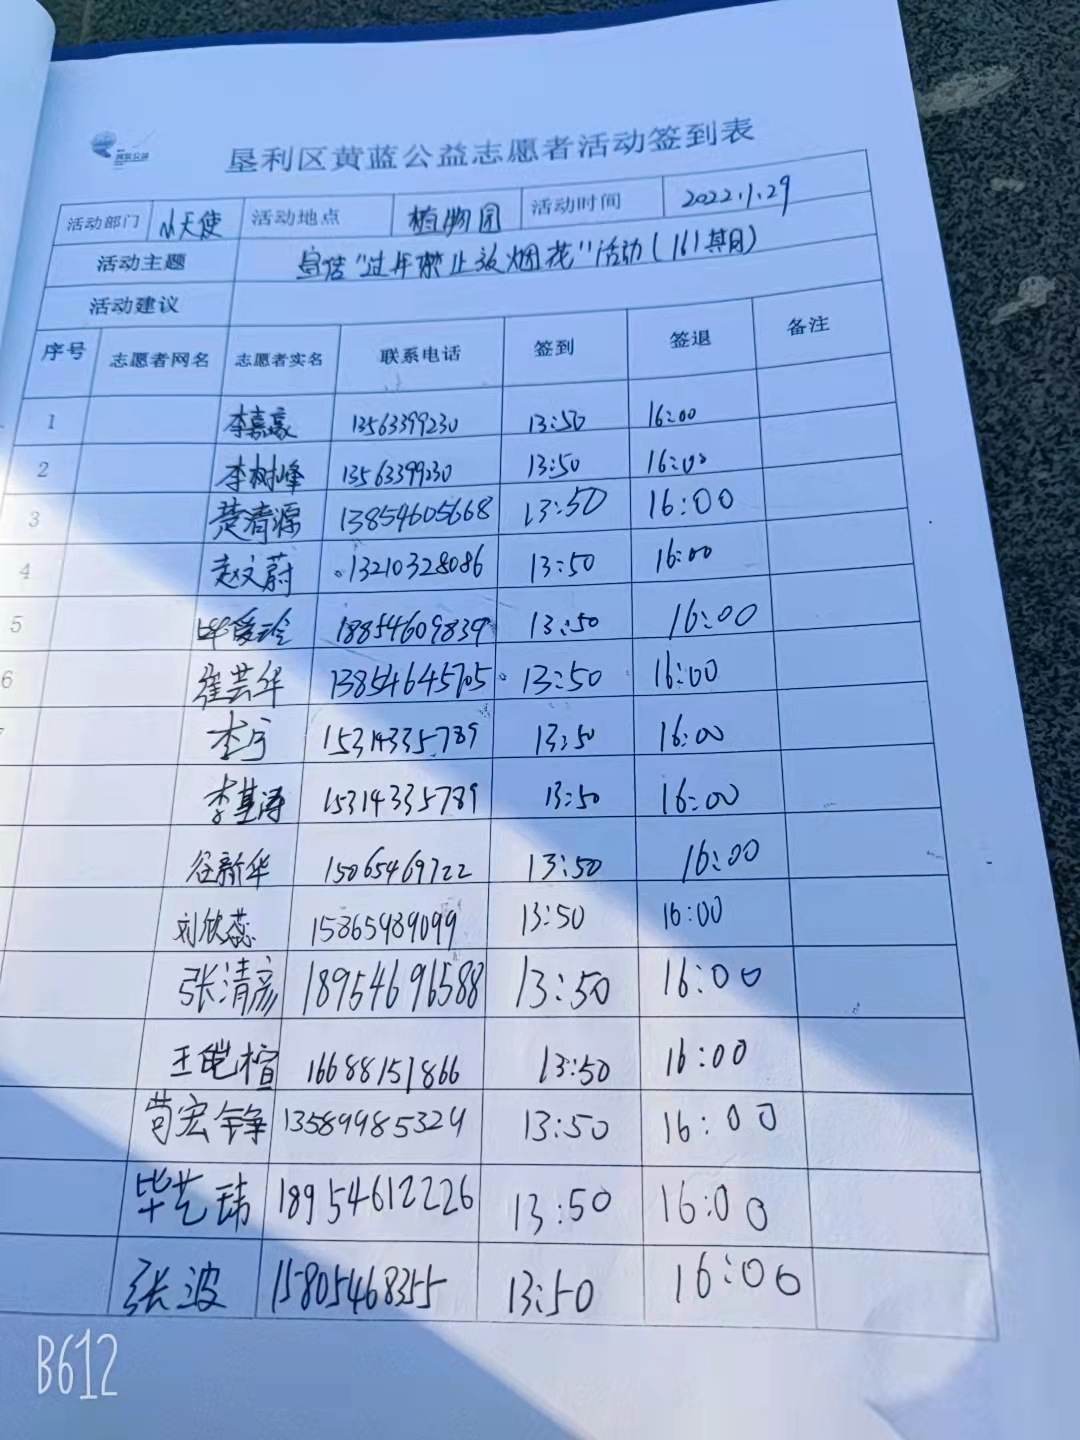 垦利区黄蓝公益志愿者活动签到表
活动部门 小天使 活动地点 植物园 活动时间 2022.1.29
活动主题 宣传"过年禁止放烟花"活动(161期)
活动建议
序号 志愿者网名 志愿者实名 联系电话 签到 签退 备注
1 李嘉豪 13563399230 13:50 16:00
2 李树峰 13563399230 13:50 16:00
3 楚清源 13854605668 13:50 16:00
4 赵文蔚 13210328086 13:50 16:00
5 毕爱玲 18854609839 13:50 16:00
6 崔芸华 13854645705 13:50 16:00
李 15314335789 13:50 16:00
李基涛 15314335789 13:50 16:00
谷新华 15065469722 13:50 16:00
刘欣蕊 15865489099 13:50 16:00
张清彦 18954696588 13:50 16:00
王皑楦 16688151866 13:50 16:00
苟宏铮 13589985324 13:50 16:00
毕艺玮 18954612226 13:50 16:00
张波 15805468355 13:50 16:00
B612